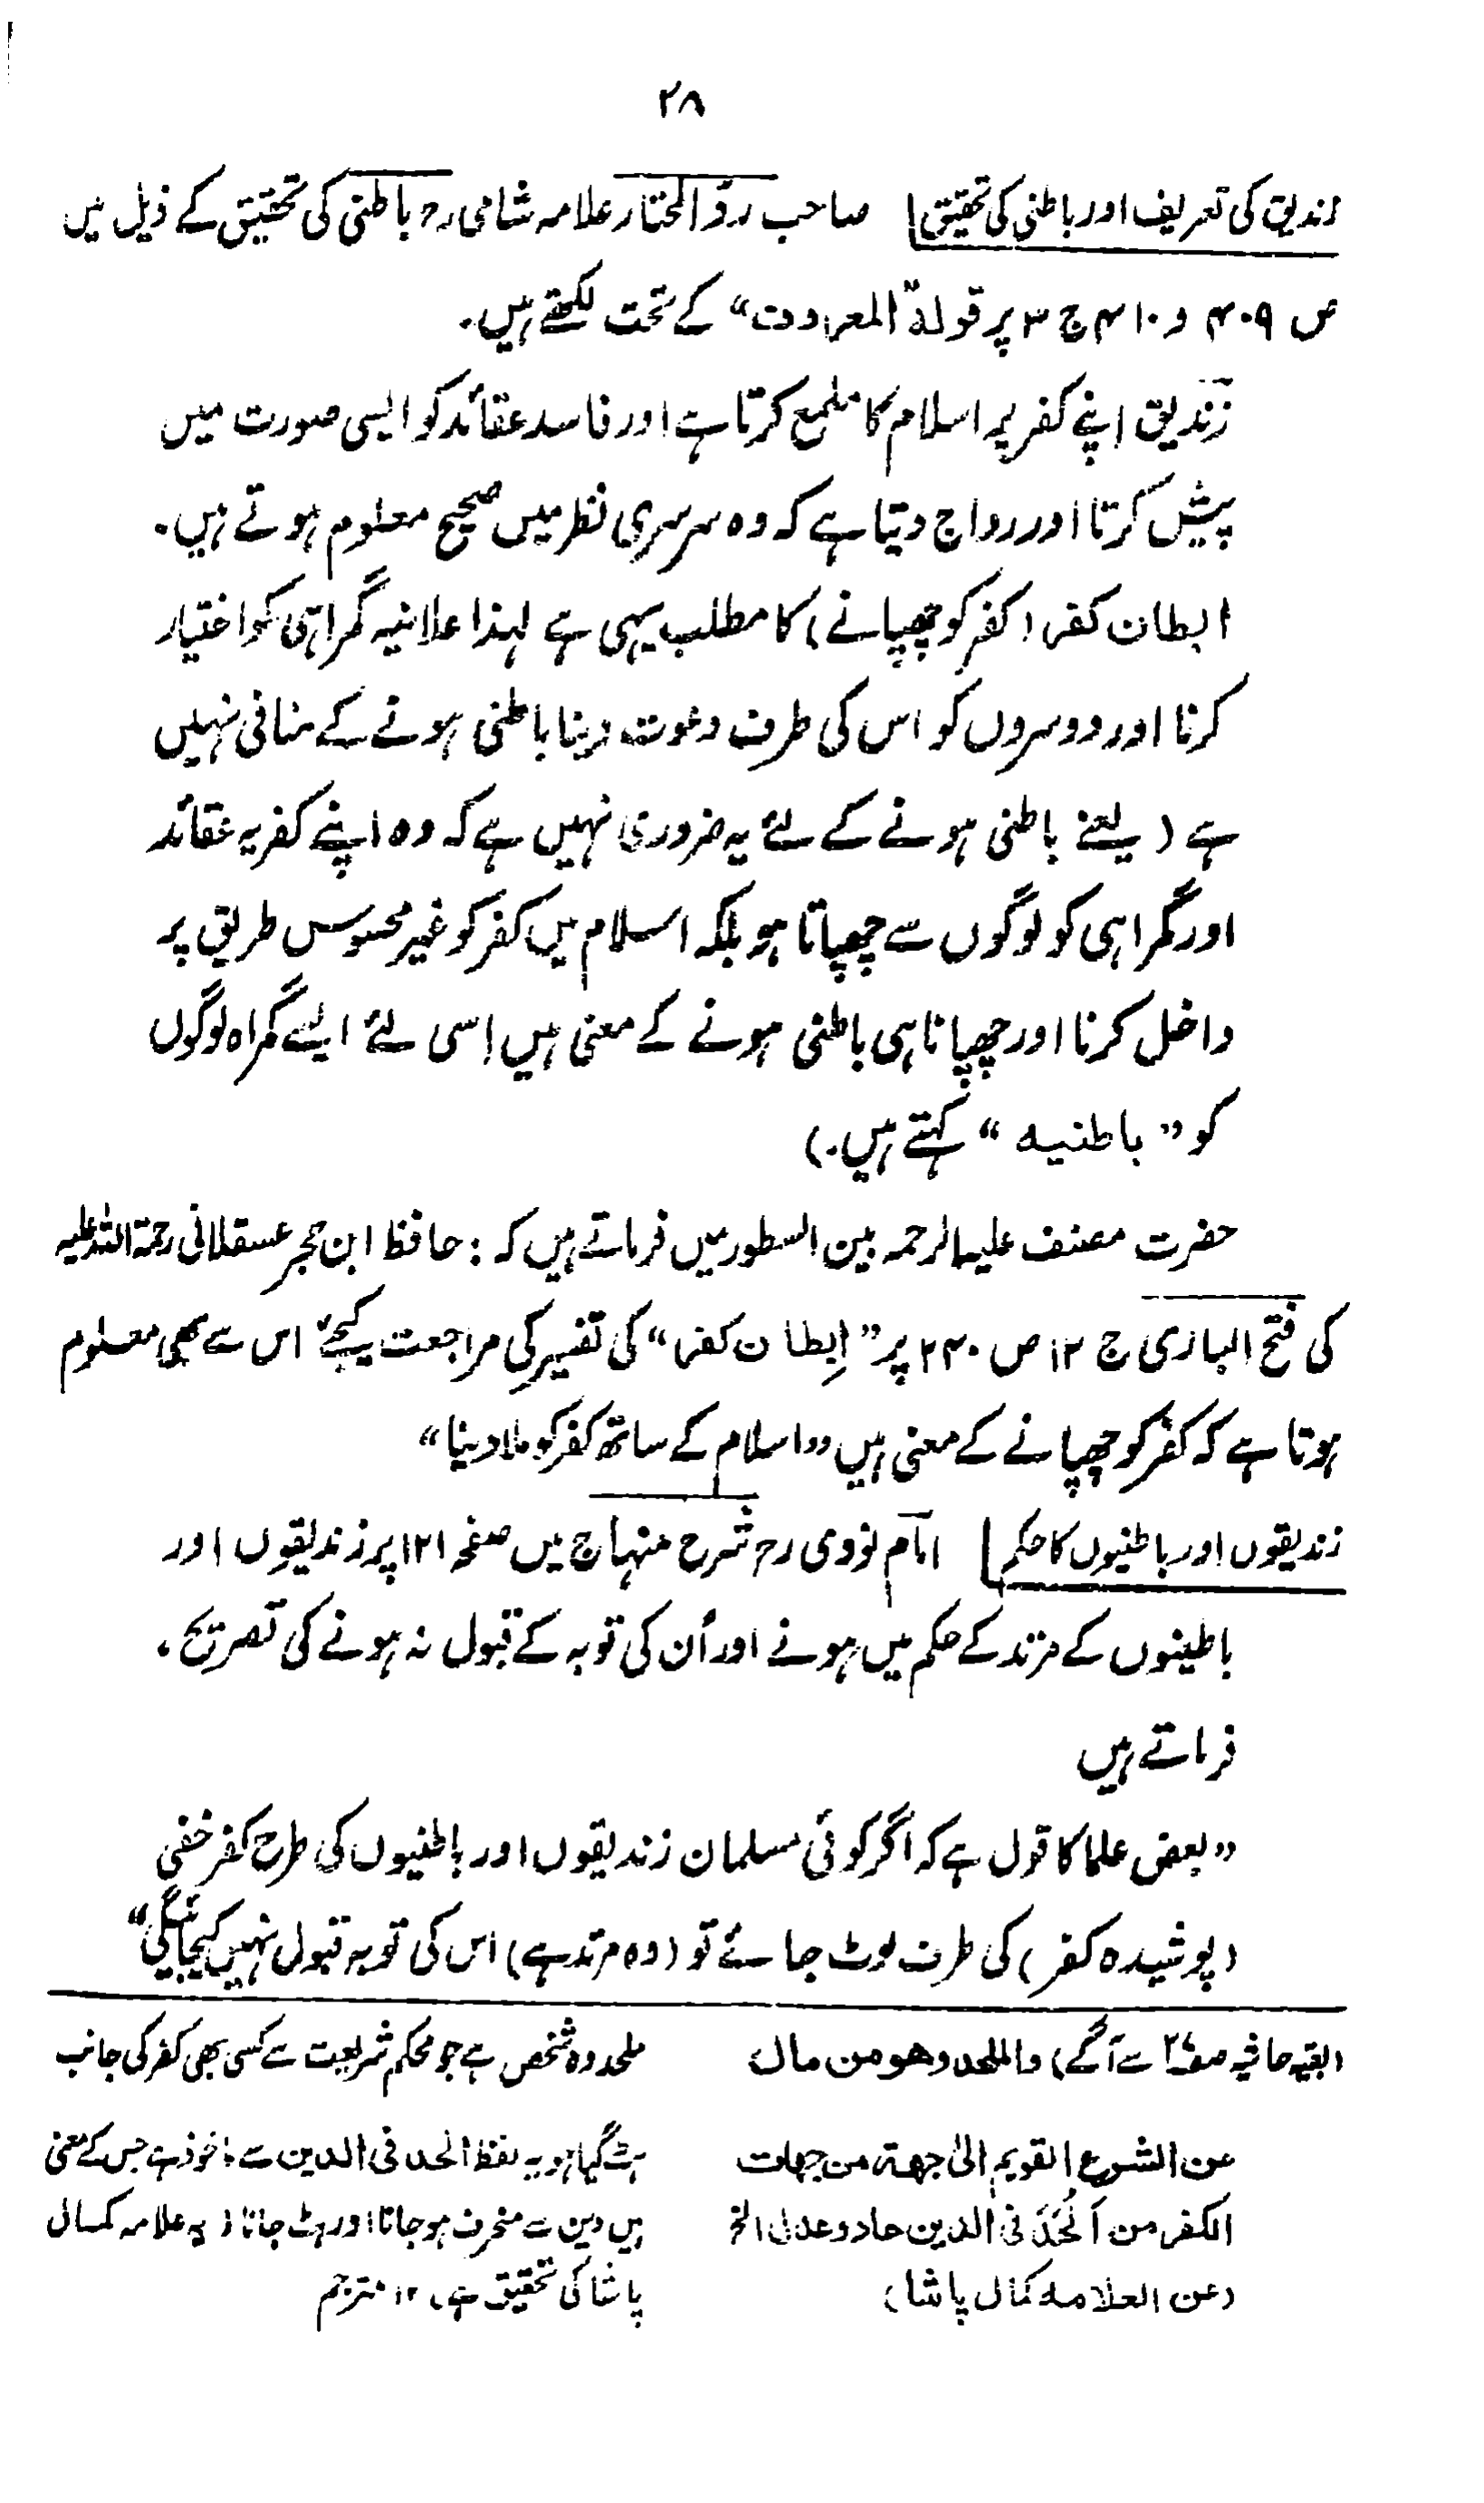 ۲۸
زندیق کی تعریف اور باطنی کی تحقیق صاحب ردّ المختار علامہ شامی رح باطنی کی تحقیق کے ذیل میں
ص ۴۰۹ و ۴۱۰ ج ۳ پر قولہ المعروف“ کے تحت لکھتے ہیں.
زندیق اپنے کفر پر اسلام کا ملمع کرتا ہے اور فاسد عقائد کو ایسی صورت میں
پیش کرتا اور رواج دیتا ہے کہ وہ سرسری نظر میں صحیح معلوم ہوتے ہیں.
ابطان کفر (کفر کو چھپانے) کا مطلب یہی ہے لہذا علانیہ گمراہی کو اختیار
کرنا اور دوسروں کو اس کی طرف دعوت دینا باطنی ہونے کے منافی نہیں
ہے (یعنے باطنی ہونے کے لئے یہ ضروری نہیں ہے کہ وہ اپنے کفریہ عقائد
اور گمراہی کو لوگوں سے چھپاتا ہو بلکہ اسلام میں کفر کو غیر محسوس طریق پر
داخل کرنا اور چھپانا ہی باطنی ہونے کے معنی ہیں اِسی لئے ایسے گمراہ لوگوں
کو ”باطنیہ“ کہتے ہیں.)
حضرت مصنف علیہ الرحمہ بین السطور میں فرماتے ہیں کہ : حافظ ابن حجر عسقلانی رحمۃ اللہ علیہ
کی فتح الباری ج ۱۲ ص ۲۴۰ پر ”اِبطان کفر“ کی تفسیر کی مراجعت کیجئے اس سے بھی معلوم
ہوتا ہے کہ کفر کو چھپانے کے معنی ہیں ”اسلام کے ساتھ کفر کو ملا دینا“
زندیقوں اور باطنیوں کا حکم امام نووی رح شرح منہاج میں صفحہ ۱۲۱ پر زندیقوں اور
باطنیوں کے مرتد کے حکم میں ہونے اور اُن کی توبہ کے قبول نہ ہونے کی تصریح،
فرماتے ہیں
”بعض علما کا قول ہے کہ اگر کوئی مسلمان زندیقوں اور باطنیوں کی طرح کفر خفی
(پوشیدہ کفر) کی طرف لوٹ جائے تو (وہ مرتد ہے) اس کی توبہ قبول نہیں کیجائیگی“
(بقیہ حاشیہ سے آگے) والملحد وهو من مال
عن الشرع القویم الیٰ جهة من جهات
الکفر من اَلْحَدَ فی الدین حاد وعدل الخ
(عن العلامہ کمال پاشا)
ملحد وہ شخص ہے جو محکم شریعت سے کسی بھی کفر کی جانب
ہٹ گیا ہو یہ لفظ الحد فی الدین سے ماخوذ ہے جس کے معنی
ہیں دین سے منحرف ہو جانا اور ہٹ جانا (یہ علامہ کمال
پاشا کی تحقیق ہے) ۱۲ مترجم